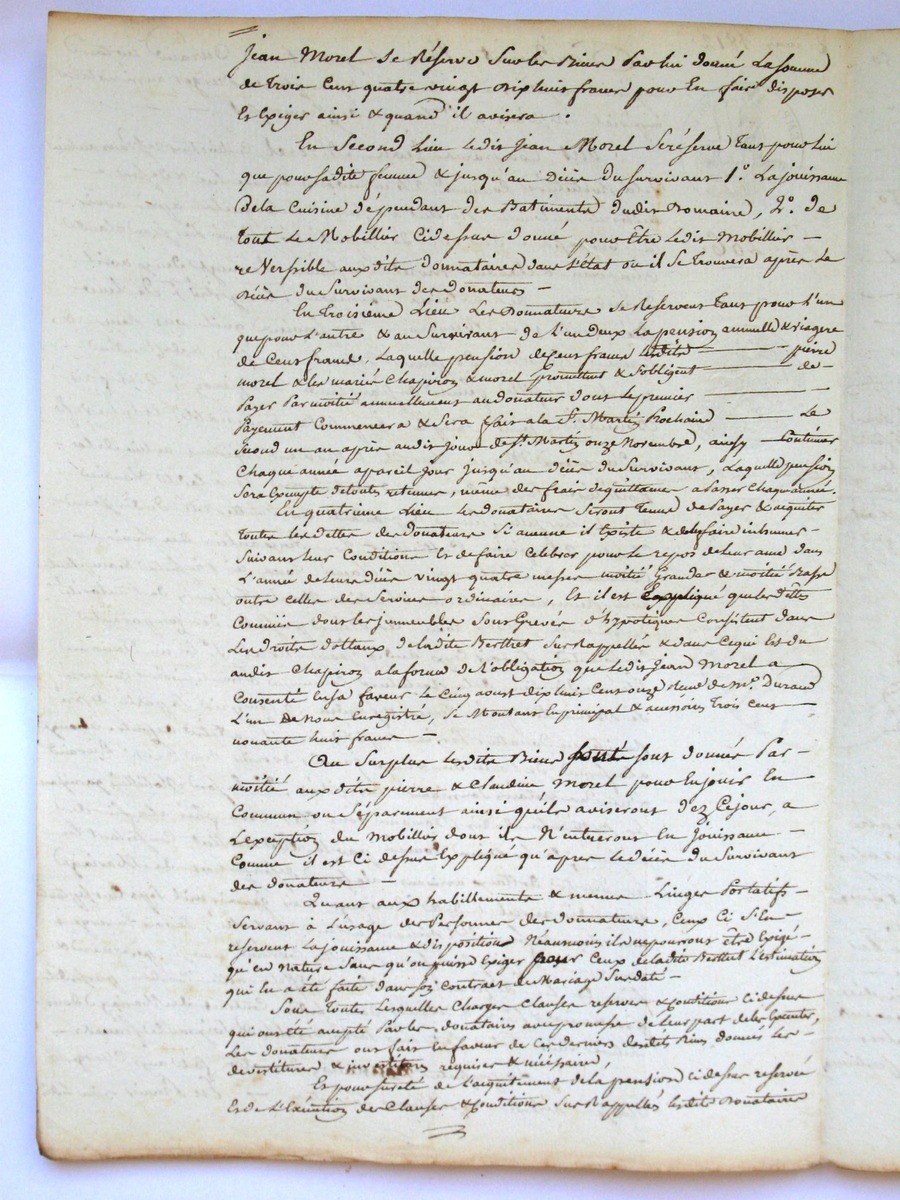 Jean Morel se Réserve sur les Biens par lui donné la somme
de trois cent quatre vingt dix huit francs pour en faire disposer
et exiger ainsi & quand il avisera.
En second lieu ledit Jean Morel se réserve tant pour lui
que pour sadite femme & jusqu'au décès du survivant 1°. La jouissance
de la cuisine dépendant des Batiments dudit Domaine, 2°. de
tout le Mobillier cidessus donné pour être ledit mobillier
reversible auxdits donnataires dans l'état ou il se trouvera après le
décès du survivant des donateurs
En troisiéme lieu les donnateurs se reservent tant pour l'un
que pour l'autre & au survivant de l'un deux la pension annuelle & viagere
de cent francs, laquelle pension de cent francs lesdits pierre
morel & les mariés Chapiron & morel promettent & s'obligent de
payer par moitié annuellement au donateur dont le premier
payement commencera & sera fait a la St. Martin prochaine Le
second un an après audit jour de St. Martin onze novembre, ainsy continuer
chaque année a pareil jour jusqu'au décès du survivant, laquelle pension
sera exempte de toutes retenues, même des frais de quittances a passer chaque année.
En quatrieme lieu les donataires seront tenus de payer & acquiter
toutes les dettes des donateurs si aucune il existe & de les faire inhumer
suivant leur condition et de faire celebrer pour le repos de leur ame dans
l'année de leurs décès vingt quatre messes moitié Grandes & moitié Basse
outre celles des services ordinaires, et il est expliqué que les dettes
commune dont les immeubles sont Grevés d'hypotèques consistent dans
les droits dottaux de ladite Berthet sus rappellés & dans ce qui est du
audit Chapiron a la forme de l'obligation que ledit Jean Morel a
consenté en sa faveur le cinq aoust dix huit cent onze devant Me. Durand
l'un de nous enregistré, se montant en principal & accessoirs trois cent
nonante huit francs
Au surplus lesdits Biens sont donnés par
moitié auxdits pierre & Claudine Morel pour en jouir en
commun ou séparement ainsi qu'ils aviseront dez ce jour, a
l'exception du mobillier dont ils n'entreront en jouissance
comme il est ci dessus expliqué qu'apres le décès du survivant
des donateurs
Quant aux habillements & menus linges portatifs
servant à l'usage des personnes des donnateurs, ceux ci s'en
reservent la jouissance & disposition néanmoins ils ne pourront être exigé
qu'en nature sans qu'on puisse exiger pour ceux de ladite Berthet l'estimation
qui lui a été faite dans son contrat de mariage susdaté
Sous toutes lesquelles charges clauses reserves & conditions cidessus
qui ont été accepté par les donataires avec promesse de leur part de les executer,
les donateurs ont fait en faveur de ces derniers desdits Biens donnés les
devestitures & investitures requises & nécessaires
Et pour sureté de l'acquitement de la pension cidessus reservée
et de l'exécution des clauses & conditions sus rappellés lesdits donataires